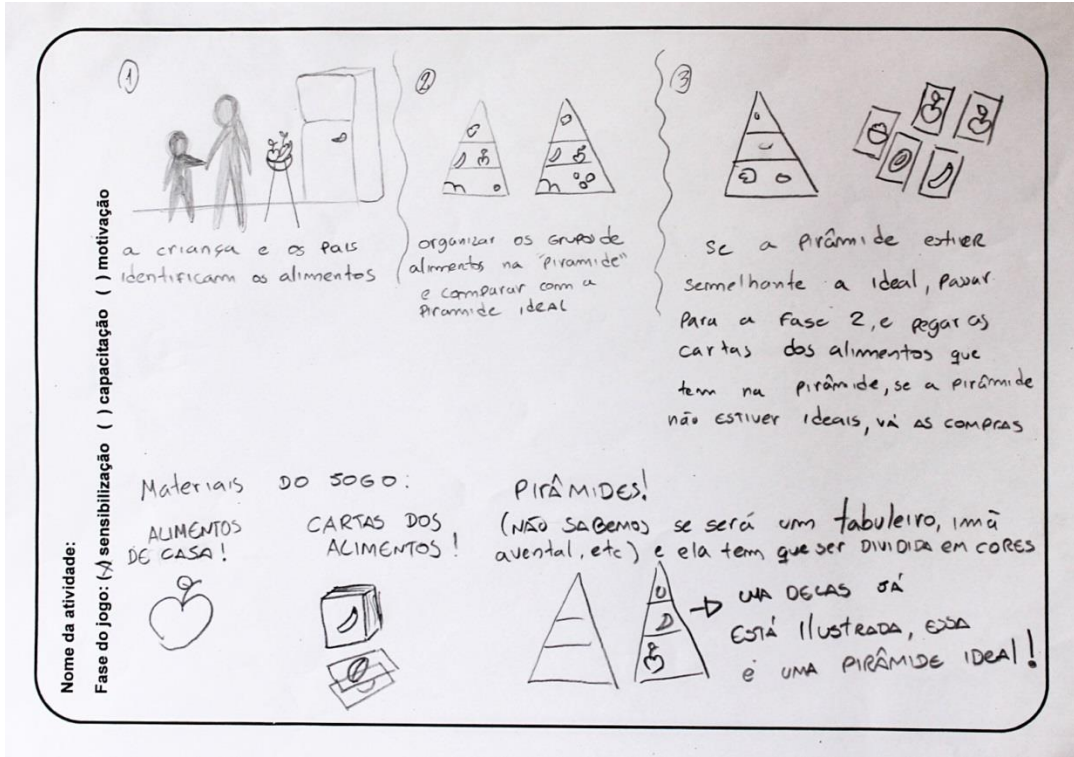 Nome da atividade:
Fase do jogo: (x) sensibilização ( ) capacitação ( ) motivação
1
a criança e os pais
identificam os alimentos
2
organizar os grupos de
alimentos na "piramide"
e comparar com a
Piramide ideal
3
se a Pirâmide estiver
semelhante a ideal, passar
Para a Fase 2, e pegar as
cartas dos alimentos que
tem na pirâmide, se a pirâmide
não estiver ideais, vá as compras
Materiais do jogo:
ALIMENTOS
DE CASA!
CARTAS DOS
ALIMENTOS!
PIRÂMIDES!
(NÃO SABEMOS se será um tabuleiro, imã
avental, etc) e ela tem que ser DIVIDIDA EM CORES
UMA DELAS JÁ
ESTÁ Ilustrada, essa
é UMA PIRÂMIDE IDEAL!